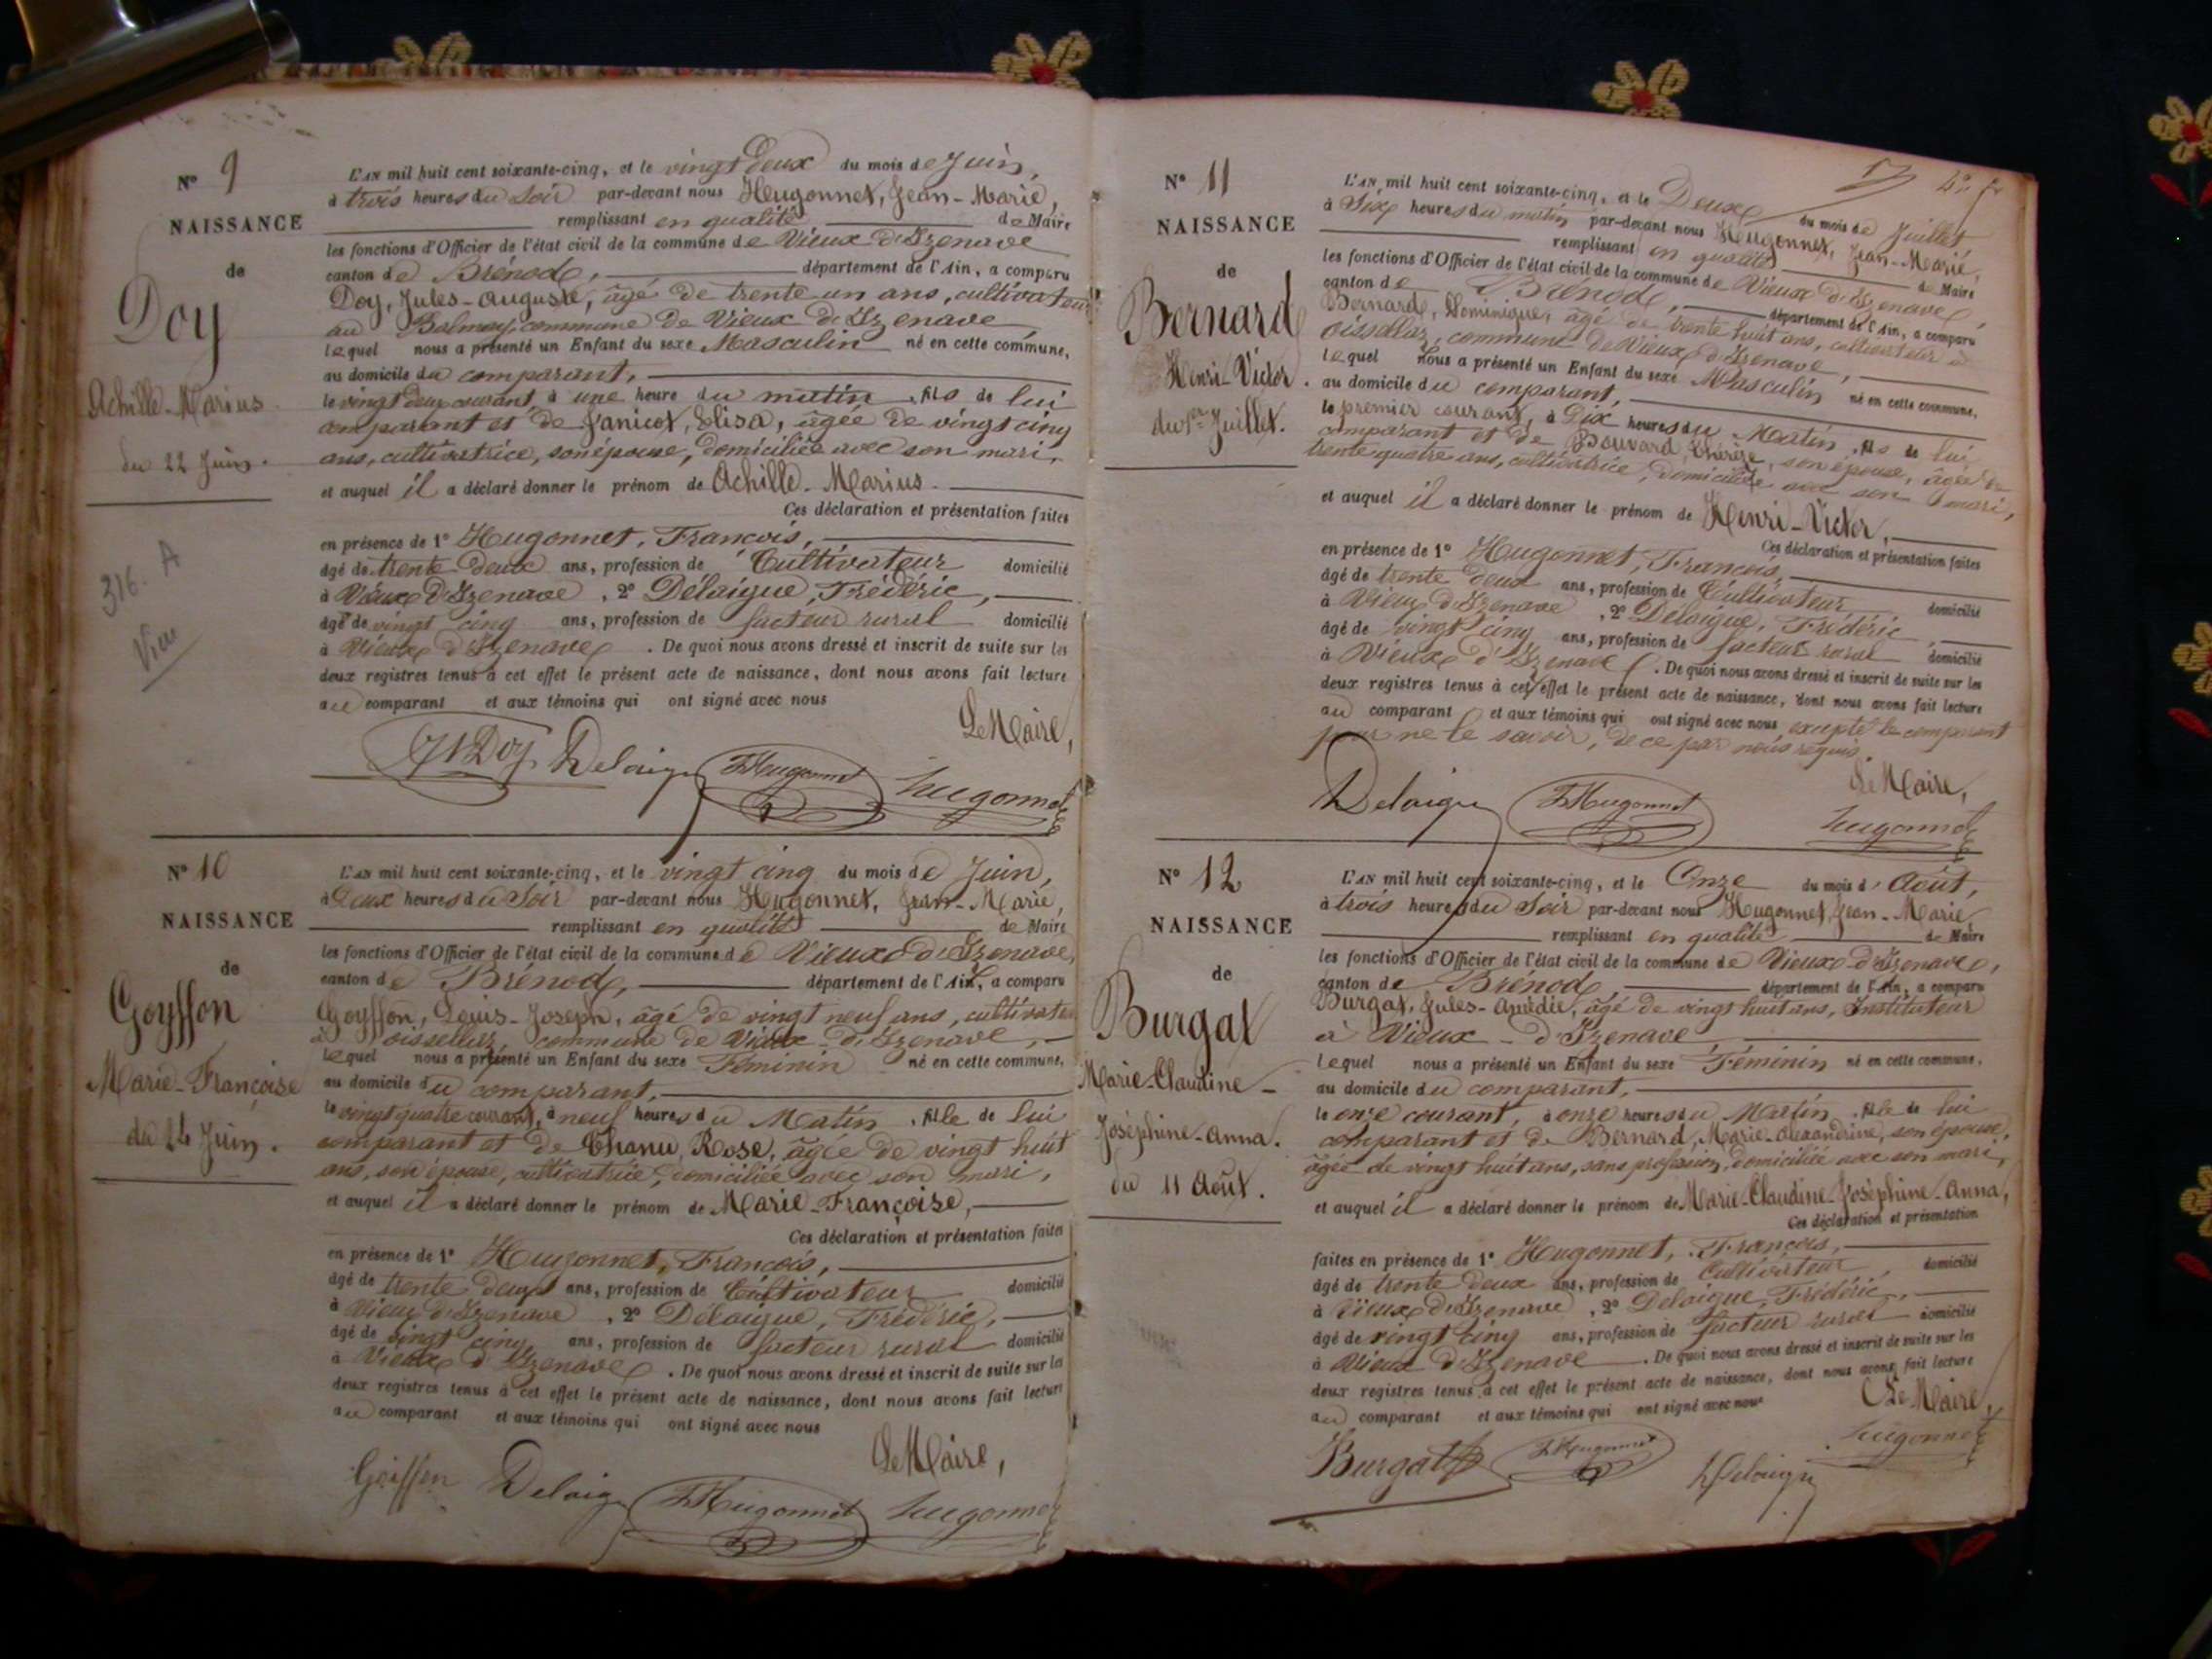 N° 9
NAISSANCE
de
Doy
Achille-Marius
du 22 Juin.
316. A
L'AN mil huit cent soixante-cinq, et le vingt deux du mois de Juin,
à trois heures du Soir par-devant nous Hugonnet, Jean-Marie,
remplissant en qualité de Maire
les fonctions d'Officier de l'état civil de la commune de Vieux-d'Izenave
canton de Brénod, département de l'Ain, a comparu
Doy, Jules-Auguste, âgé de trente un ans, cultivateur
au Balmay, commune de Vieux d'Izenave
lequel nous a présenté un Enfant du sexe Masculin né en cette commune,
au domicile du comparant,
le vingt deux courant, à une heure du matin, fils de lui
comparant et de Janicot, Elisa, âgée de vingt cinq
ans, cultivatrice, son épouse, domiciliée avec son mari,
et auquel il a déclaré donner le prénom de Achille-Marius.
Ces déclaration et présentation faites
en présence de 1° Hugonnet, François,
âgé de trente deux ans, profession de Cultivateur domicilié
à Vieux d'Izenave, 2° Délaigue, Frédéric,
âgé de vingt cinq ans, profession de facteur rural domicilié
à Vieux d'Izenave. De quoi nous avons dressé et inscrit de suite sur les
deux registres tenus à cet effet le présent acte de naissance, dont nous avons fait lecture
au comparant et aux témoins qui ont signé avec nous
Le Maire,
Doy Delaigue FHugonnet Hugonnet
N° 10
NAISSANCE
de
Goyffon
Marie-Françoise
du 24 Juin.
L'AN mil huit cent soixante-cinq, et le vingt cinq du mois de Juin,
à Deux heures du Soir par-devant nous Hugonnet, Jean-Marie,
remplissant en qualité de Maire
les fonctions d'Officier de l'état civil de la commune de Vieux d'Izenave,
canton de Brénod, département de l'Ain, a comparu
Goyffon, Louis-Joseph, âgé de vingt neuf ans, cultivateur
à Oissellaz, commune de Vieux-d'Izenave,
lequel nous a présenté un Enfant du sexe Féminin né en cette commune,
au domicile du comparant,
le vingt quatre courant, à neuf heures du Matin, fille de lui
comparant et de Chanu, Rose, âgée de vingt huit
ans, son épouse, cultivatrice, domiciliée avec son mari,
et auquel il a déclaré donner le prénom de Marie-Françoise,
Ces déclaration et présentation faites
en présence de 1° Hugonnet, François,
âgé de trente deux ans, profession de Cultivateur domicilié
à Vieux d'Izenave, 2° Délaigue, Frédéric,
âgé de vingt cinq ans, profession de facteur rural domicilié
à Vieux d'Izenave. De quoi nous avons dressé et inscrit de suite sur les
deux registres tenus à cet effet le présent acte de naissance, dont nous avons fait lecture
au comparant et aux témoins qui ont signé avec nous
Le Maire,
Goiffon Delaigue FHugonnet Hugonnet
17
N° 11
NAISSANCE
de
Bernard
Henri-Victor.
du 1er Juillet.
L'AN mil huit cent soixante-cinq, et le Deux du mois de Juillet,
à Six heures du matin par-devant nous Hugonnet, Jean-Marie,
remplissant en qualité de Maire
les fonctions d'Officier de l'état civil de la commune de Vieux d'Izenave,
canton de Brénod, département de l'Ain, a comparu
Bernard, Dominique, âgé de trente huit ans, cultivateur à
Oissellaz, commune de Vieux d'Izenave,
lequel nous a présenté un Enfant du sexe Masculin né en cette commune,
au domicile du comparant,
le premier courant, à Dix heures du Matin, fils de lui
comparant et de Bouvard, Thérèse, son épouse, âgée de
trente quatre ans, cultivatrice, domiciliée avec son mari,
et auquel il a déclaré donner le prénom de Henri-Victor,
Ces déclaration et présentation faites
en présence de 1° Hugonnet, François,
âgé de trente deux ans, profession de Cultivateur domicilié
à Vieux d'Izenave, 2° Delaigue, Frédéric,
âgé de vingt cinq ans, profession de facteur rural domicilié
à Vieux d'Izenave. De quoi nous avons dressé et inscrit de suite sur les
deux registres tenus à cet effet le présent acte de naissance, dont nous avons fait lecture
au comparant et aux témoins qui ont signé avec nous excepté le comparant
pour ne le savoir, de ce par nous requis.
Le Maire,
Delaigue FHugonnet Hugonnet
N° 12
NAISSANCE
de
Burgat
Marie-Claudine-
Joséphine-Anna.
du 11 Août.
L'AN mil huit cent soixante-cinq, et le Onze du mois d'Août,
à trois heures du Soir par-devant nous Hugonnet, Jean-Marie
remplissant en qualité de Maire
les fonctions d'Officier de l'état civil de la commune de Vieux-d'Izenave,
canton de Brénod, département de l'Ain, a comparu
Burgat, Jules-Amédée, âgé de vingt huit ans, Instituteur
à Vieux-d'Izenave
lequel nous a présenté un Enfant du sexe Féminin né en cette commune,
au domicile du comparant,
le onze courant, à onze heures du Matin, fille de lui
comparant et de Bernard, Marie-Alexandrine, son épouse,
âgée de vingt huit ans, sans profession, domiciliée avec son mari,
et auquel il a déclaré donner le prénom de Marie-Claudine-Joséphine-Anna,
Ces déclaration et présentation
faites en présence de 1° Hugonnet, François,
âgé de trente deux ans, profession de Cultivateur, domicilié
à Vieux d'Izenave, 2° Delaigue, Frédéric,
âgé de vingt cinq ans, profession de facteur rural domicilié
à Vieux d'Izenave. De quoi nous avons dressé et inscrit de suite sur les
deux registres tenus à cet effet le présent acte de naissance, dont nous avons fait lecture
au comparant et aux témoins qui ont signé avec nous
Le Maire,
Burgat FHugonnet Delaigue Hugonnet